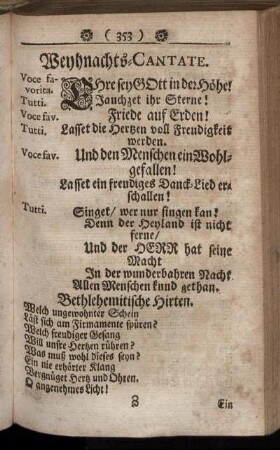 ( 353 )
Weyhnachts-CANTATE.
Voce favorita. EHre sey GOtt in der Höhe!
Tutti. Jauchzet ihr Sterne!
Voce fav. Friede auf Erden!
Tutti. Lasset die Hertzen voll Freudigkeit
werden.
Voce fav. Und den Menschen ein Wohl-
gefallen!
Lasset ein freudiges Danck-Lied er-
schallen!
Tutti. Singet/ wer nur singen kan!
Denn der Heyland ist nicht
ferne/
Und der HERR hat seine
Macht
In der wunderbahren Nacht
Allen Menschen kund gethan.
Bethlehemitische Hirten.
Welch ungewohnter Schein
Läst sich am Firmamente spüren?
Welch freudiger Gesang
Will unsre Hertzen rühren?
Was muß wohl dieses seyn?
Ein nie erhörter Klang
Vergnüget Hertz und Ohren.
O angenehmes Licht!
Z Ein